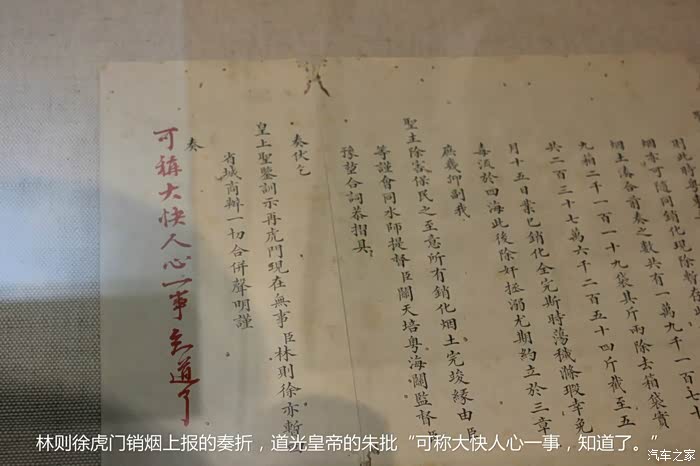 則此時
烟亦可隨同銷化現除暫存
烟土湊合前奏之數共有一萬九千一百七十
九箱二千一百一十九袋其斤兩除去箱袋實
共二百三十七萬六千二百五十四斤截至五
月十五日業已銷化全完斯時蕩穢滌瑕幸免
毒流於四海此後除奸拯溺尤期約立於三章
庶幾仰副我
聖主除害保民之至意所有銷化烟土完竣緣由臣
等謹會同水師提督臣關天培粵海關監督臣
豫堃合詞恭摺具
奏伏乞
皇上聖鑒訓示再虎門現在無事臣林則徐亦暫
省城商辦一切合併聲明謹
奏
可稱大快人心一事知道了
林则徐虎门销烟上报的奏折，道光皇帝的朱批“可称大快人心一事，知道了。”
汽车之家